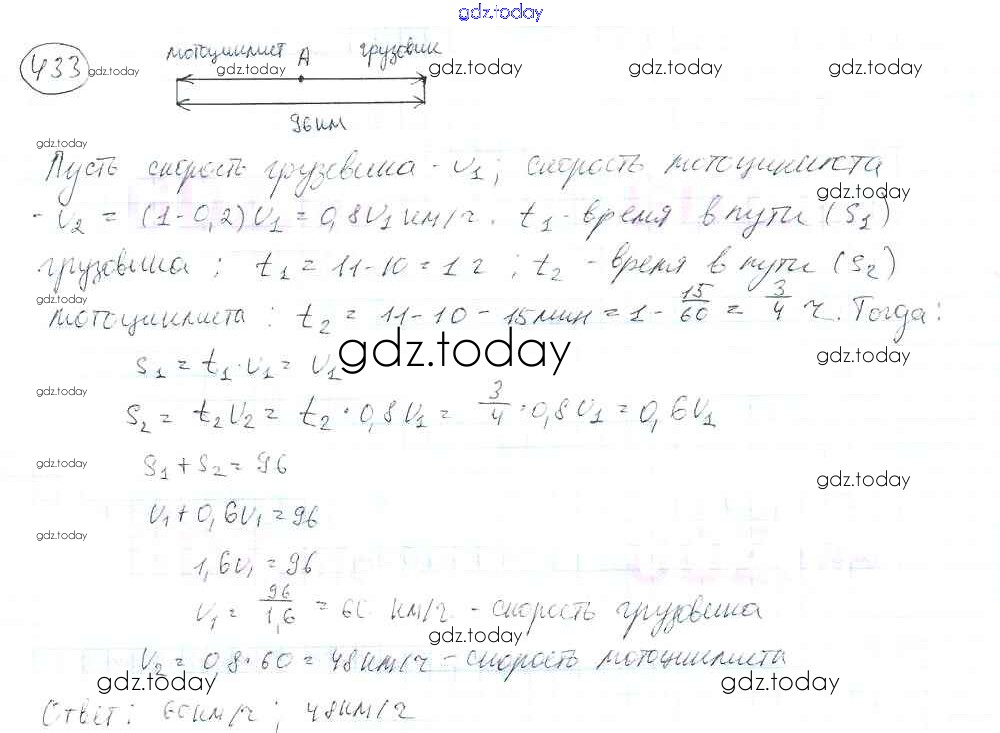 gdz.today
мотоциклист A грузовик
433 gdz.today gdz.today gdz.today gdz.today gdz.today
96 км
gdz.today
Пусть скорость грузовика - v₁; скорость мотоциклиста
gdz.today
- v₂ = (1-0,2)v₁ = 0,8v₁ км/ч. t₁ - время в пути (S₁)
грузовика; t₁ = 11-10 = 1 ч; t₂ - время в пути (S₂)
gdz.today
мотоциклиста: t₂ = 11-10-15мин = 1 - 15/60 = 3/4 ч. Тогда:
gdz.today gdz.today
S₁ = t₁·v₁ = v₁
gdz.today
S₂ = t₂v₂ = t₂ · 0,8v₁ = 3/4 · 0,8v₁ = 0,6v₁
gdz.today S₁ + S₂ = 96
gdz.today
v₁ + 0,6v₁ = 96
gdz.today
1,6v₁ = 96
v₁ = 96/1,6 = 60 км/ч - скорость грузовика
gdz.today
v₂ = 0,8·60 = 48км/ч - скорость мотоциклиста
gdz.today gdz.today
Ответ: 60км/ч; 48км/ч